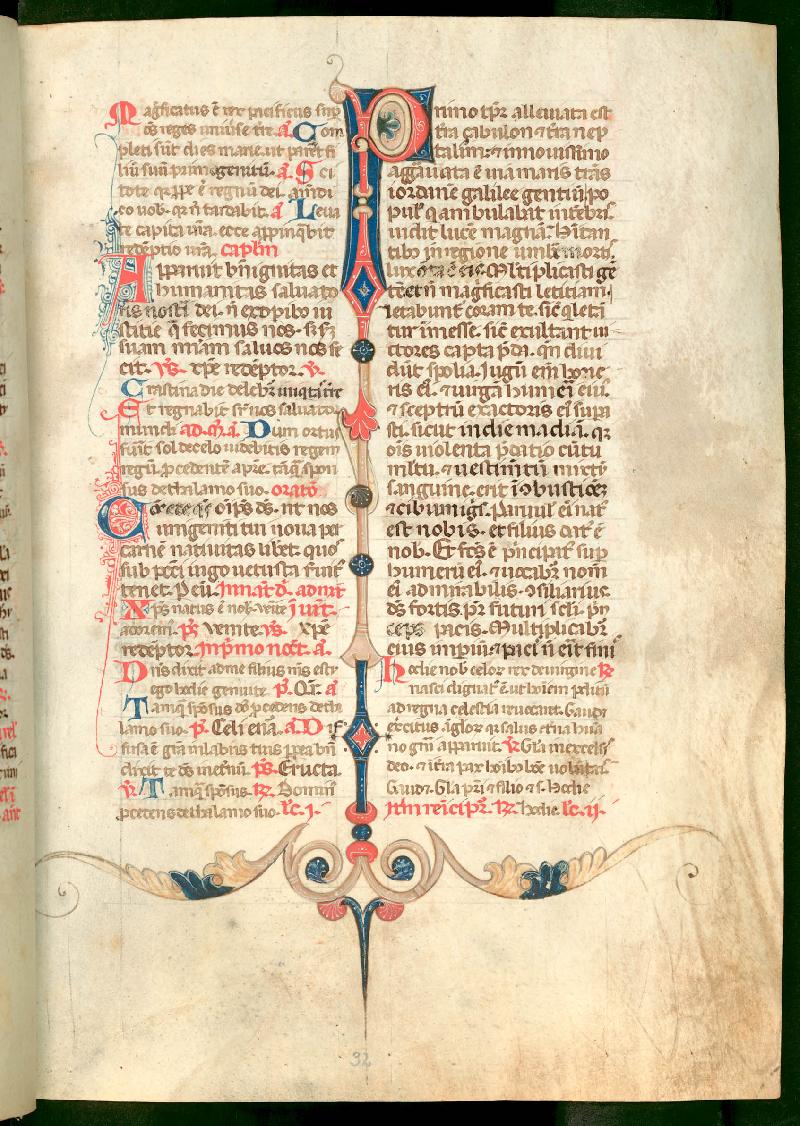 Magficatus ē rex pacificus sup
om̄s reges uniuẽse tr̄e. a. Com
pleti sūt dies marie. ut pareret fi
liū suū primogenitū. a. Sci
tote q̄ ꝓpe ē regnū dei. am̄ di
co uob. qr n̄ tardabit. a. Leua
te capita ūra. ecce appinq̄bit
redēptio ūra. caplm
Apparuit bn̄ignitas et
humanitas saluato
ris nostri dei. n̄ ex opibꝰ iu
stitie q̄ fecimus nos. sꝫ scd̄ꝫ
suam m̄iam saluos nos fe
cit. ỹs. xp̄e redēptor. ꝟ.
Crastina die delebr̄ iniqtas tr̄e
Et regnabit sr̄ nos saluator
mundi. ad. m̄. a. Dum ortus
fuīt sol de celo uidebitis regem
regū. ꝓcedentē a pr̄e. tāq̄ spon
sus de thalamo suo. oratō
Concede q̄s om̄ps ds̄. ut nos
unigeniti tui noua per
carnē natiuitas liberet. quos
sub pcc̄i iugo uetusta s̄uit9
tenet. P eūꝫ. In nat̄. d. ad mat̄
Xps̄ natus ē nob. uenite. inuit.
adorem9. ps̄ uenite. ỹs. xp̄e
redēptor. In pͥmo noct̄. a.
Dn̄s dixit ad me filius m̄s es tu
ego hodie genui te. p̄. Qr̄. a
Tamq̄ spōsus dn̄s ꝓcedens de tha
lamo suo. p̄. Celi enar̄. a. Dif
fusa ē gr̄a in labiis tuis ꝓpea bn̄
dixit te ds̄ in et̄nū. ps̄. Eructa.
ꝟ. Tamq̄ spōsus. ℟. Domin9
ꝓcedens de thalamo suo. lc̄. i.
Primo tp̄r alleuiata est
tr̄a çabulon ⁊ tr̄a nep
talim: ⁊ in nouissimo
aggͣuata ē uia maris trās
iordanē galilee gentiū. po
pul9 q̄ ambulabat in tenebris
uidit lucē magnā. Hītan
tibꝰ in regione umbre mortis
lux orta ē eis. Mltiplicasti gē
tē et n̄ magficasti letitiam.
letabunt̄ coram te. sic̄ q̄ letā
tur in messe. sic̄ exultant ui
ctores capta p̄da. qn̄ diui
dūt spolia. Iugū em̄ hone
ris ei9. ⁊ uirgā humeri ei9.
⁊ sceptrū exactoris ei9 supa
sti. sicut in die madiā. qꝫ
ois̄ uiolenta p̄datio cū tu
multu. ⁊ uestim̄tū mixtū
sanguine. erit ī ꝯbustiōeꝫ
⁊ cibum ignis. Paruul9 ei̅ nat9
est nobis. et filius dat9 ē
nob. Et fc̄s ē pͥncipat9 sup
humerū ei9. ⁊ uocabr̄ nom̄
ei9 admirabilis. ꝯsiliarius.
ds̄ fortis. pr̄ futuri scl̄i. pͥn
ceps pacis. Multiplicabr̄
eius inpiū: ⁊ pacis n̄ erit finis
Hodie nob celor rex de uirgine ℟
nasci dignat9 ē ut hoīem pditū
ad regna celestia reuocaret. Gaudꝫ
exercitus āglor qr salus eterna hūa
no gn̄i apparuit. ꝟ. Gl̄a in excelsis
deo. ⁊ i tr̄a pax hoībꝰ bōe uolūtatis
Gaudꝫ. Gl̄a pr̄i ⁊ filio ⁊ s. Hodie
Itm̄ reīcipr̄. ℟. hodie. lc̄. ii.
32